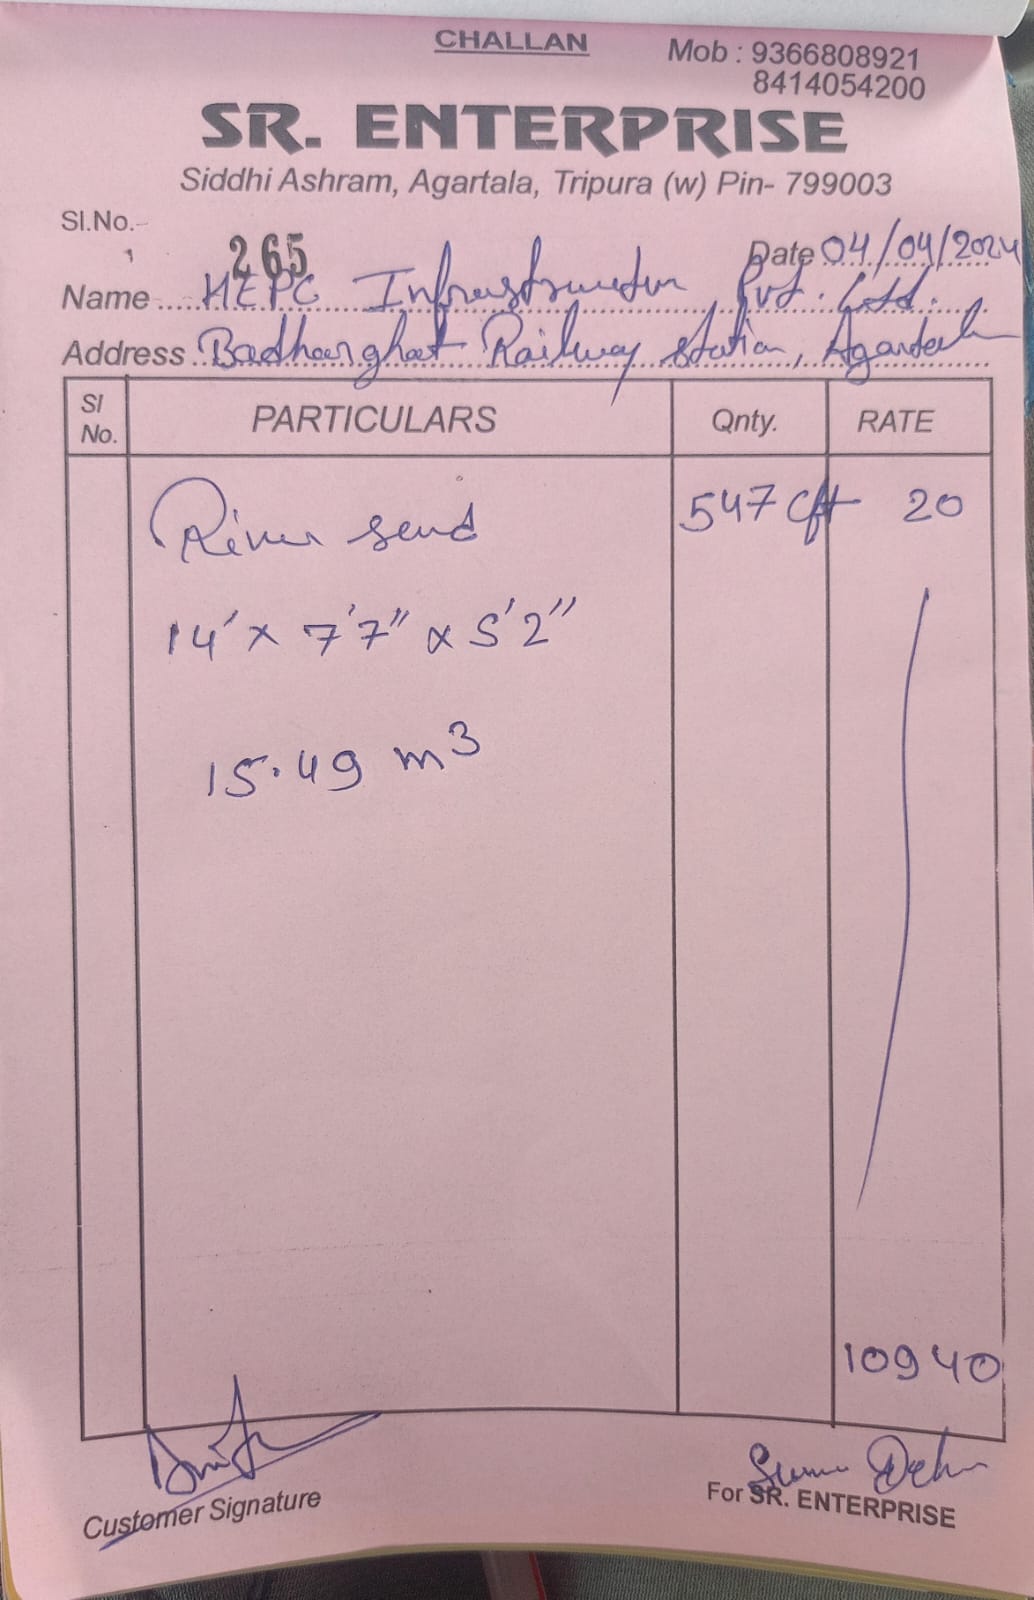 CHALLAN
Mob : 9366808921
8414054200
SR. ENTERPRISE
Siddhi Ashram, Agartala, Tripura (w) Pin- 799003
Sl.No.-
265
Date 04/04/2024
Name HEPC Infrastructure Pvt. Ltd.
Address Badharghat Railway Station, Agartala
Sl No. PARTICULARS Qnty. RATE
River send 547 cft 20
14' x 7'7" x 5'2"
15.49 m3
10940
Customer Signature
For SR. ENTERPRISE